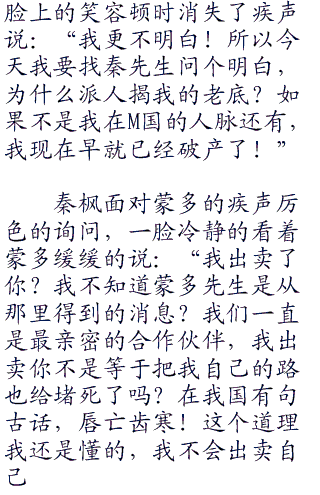 脸上的笑容顿时消失了疾声
说：“我更不明白！所以今
天我要找秦先生问个明白，
为什么派人揭我的老底？如
果不是我在M国的人脉还有，
我现在早就已经破产了！”
秦枫面对蒙多的疾声厉
色的询问，一脸冷静的看着
蒙多缓缓的说：“我出卖了
你？我不知道蒙多先生是从
那里得到的消息？我们一直
是最亲密的合作伙伴，我出
卖你不是等于把我自己的路
也给堵死了吗？在我国有句
古话，唇亡齿寒！这个道理
我还是懂的，我不会出卖自
己